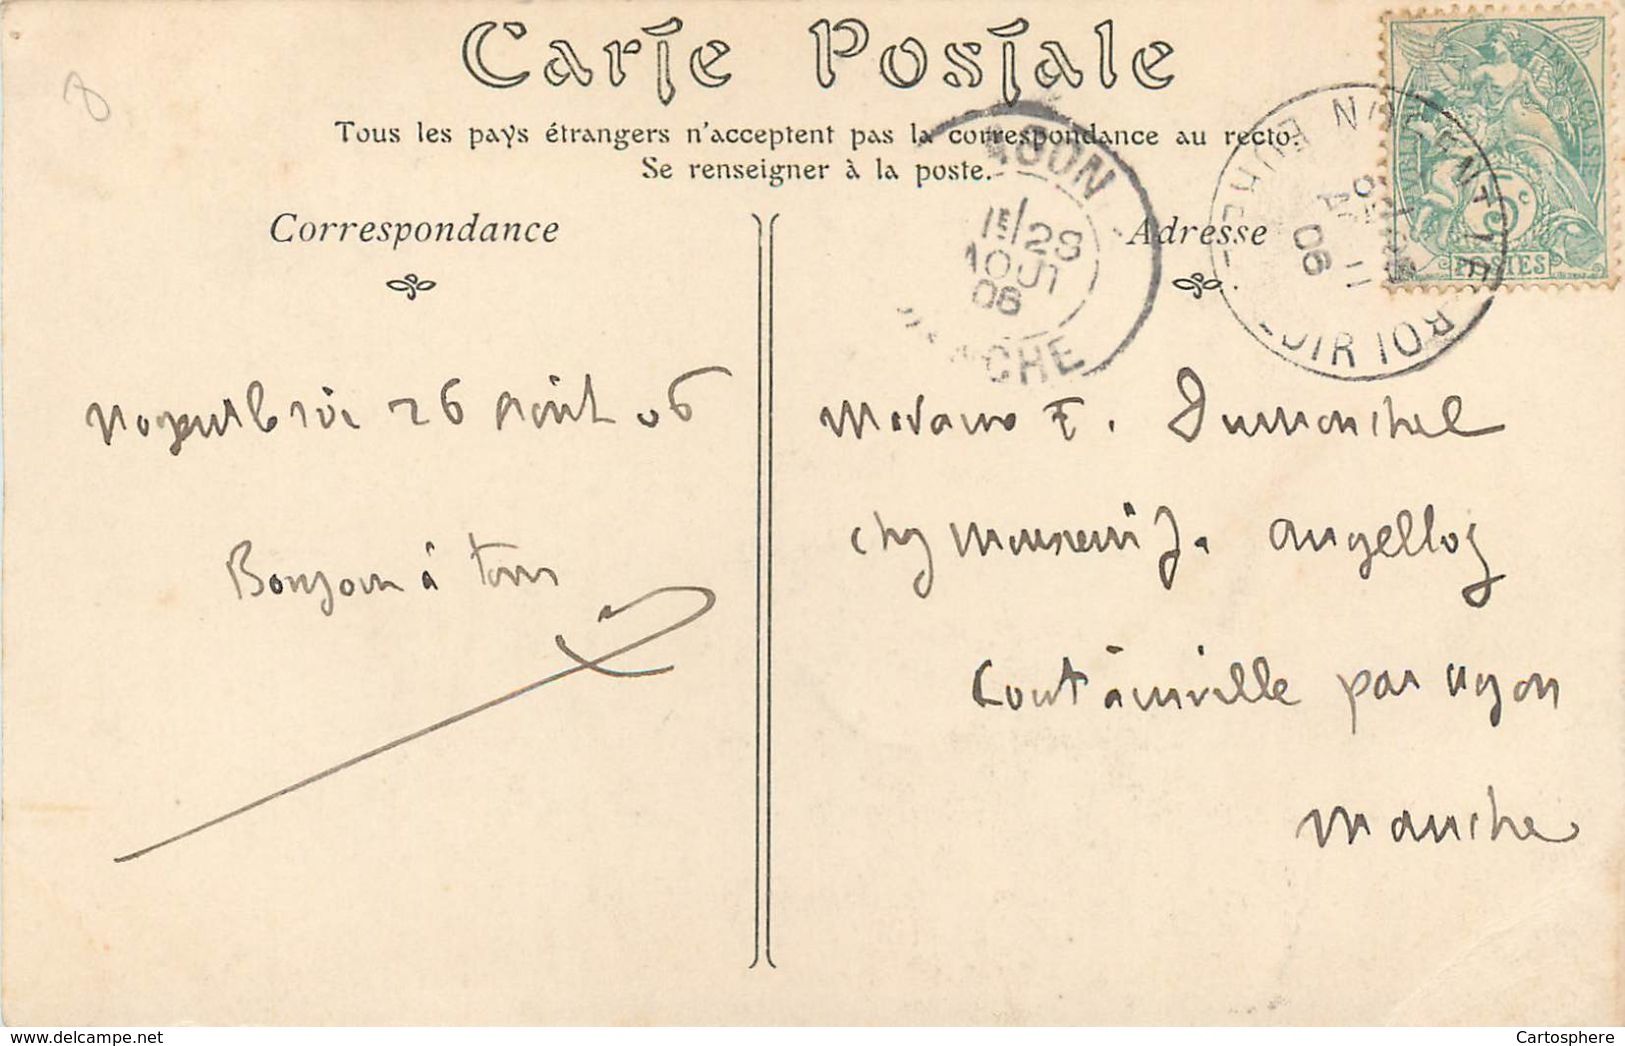 8
Carte Postale
Tous les pays étrangers n'acceptent pas la correspondance au recto.
Se renseigner à la poste.
Correspondance
Adresse
AGON
1E/28
AOUT
06
MANCHE
NOGENT-LE-ROI
EURE-
-OIR
06
REPUBLIQUE FRANÇAISE
5c
POSTES
Nogent le roi 26 Août 06
Bonjour à tous
Madame E. Dumonchel
chez Monsieur J. Angelloz
Coutainville par Agon
Manche
www.delcampe.net
Cartosphere